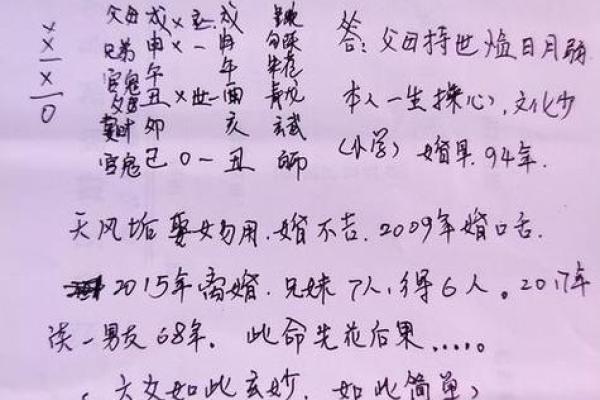 父母戌×世戌
×
兄弟申×一申
×
官鬼午 午
父母丑×世一酉 青龙
妻财卯 亥 玄武
0
官鬼巳0一丑
答:父母持世 日月弱
本人一生操心,文化少
(小学)婚早.94年.
天风垢 娶女勿用.婚不吉.2009年婚口舌.
2015年离婚.兄妹7人,得6人。2017年
谈一男友68年。此命先花后果.....。
(六爻如此玄妙,如此简单)